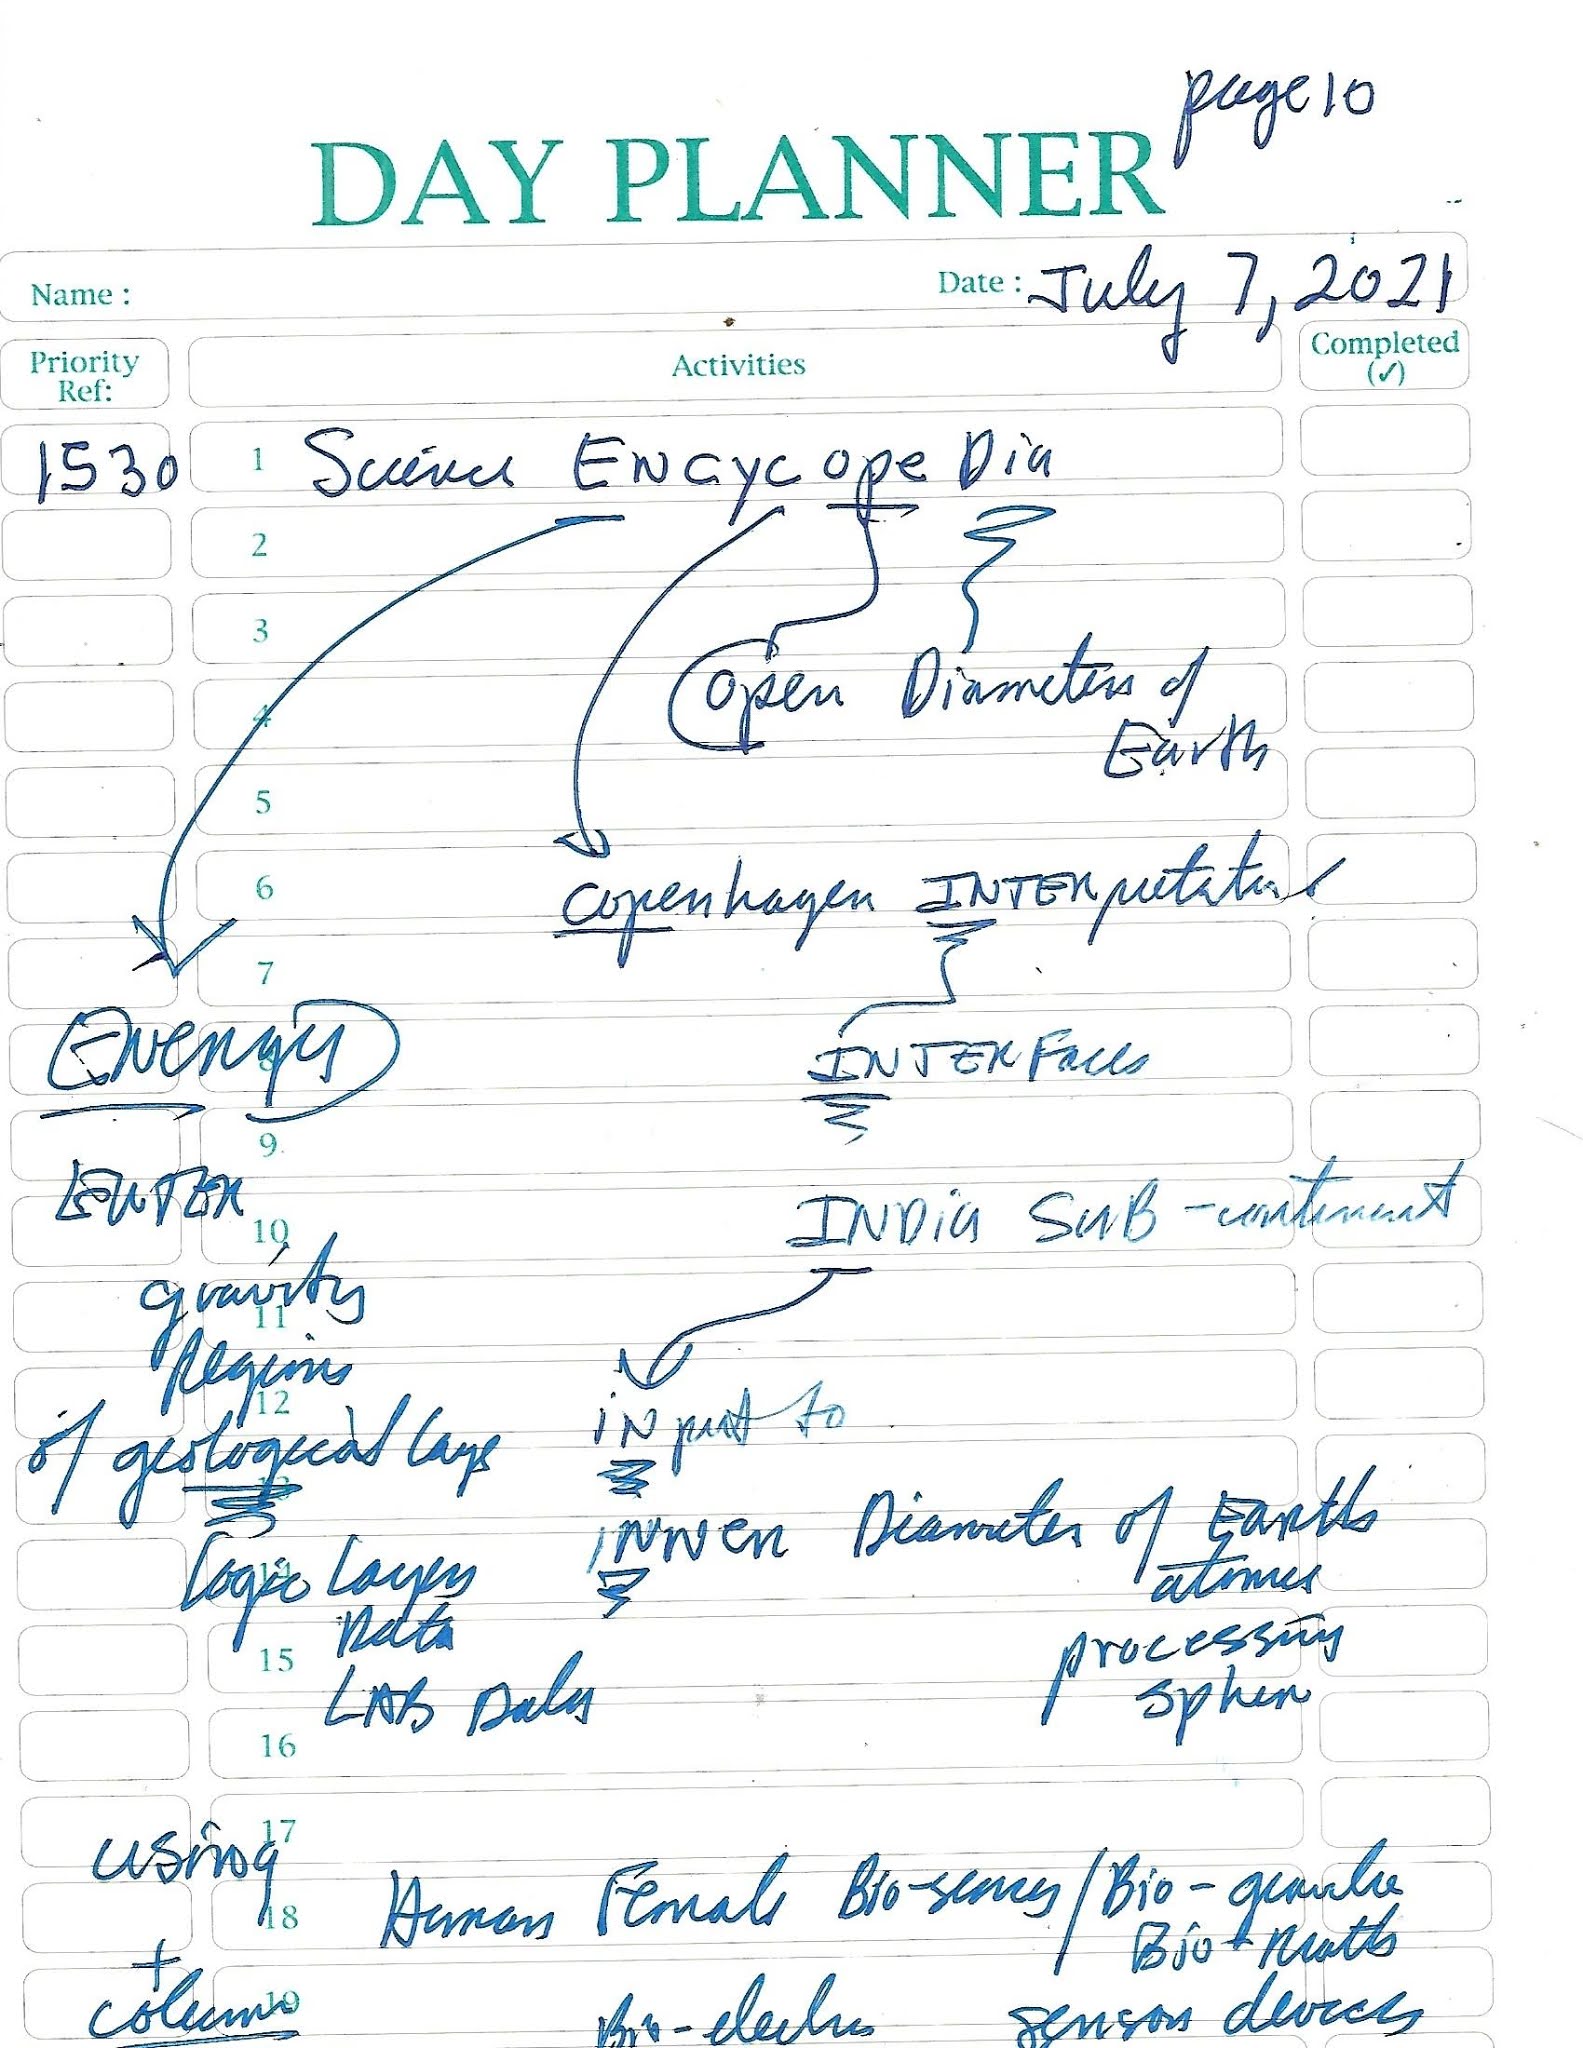 page 10
DAY PLANNER
Name :
Date : July 7, 2021
Priority Ref:
Activities
Completed (✓)
1530
1 Science ENCYCOPEDia
2
3
4 open Diameters of
Earth
5
6 copenhagen INTERpretation
7
8 Energy
INTERFaces
9
ENTER
10 INDia SUB-continent
gravity
11
Regions
12
of geological Lays
INput to
13
INNer Diameter of Earth
14 Logic Layers
atomic
Data
15 processing
LAB Data
sphere
16
17
using
18 Human Female Bio-sensors/Bio-
Bio-Math
+
19 column
Bio-electric sensor devices